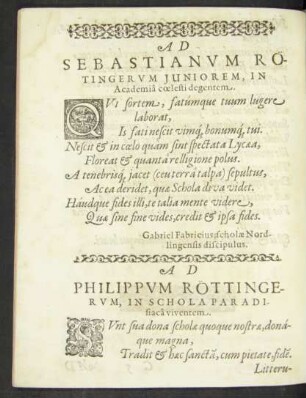 AD
SEBASTIANVM RÖ-
TINGERVM JUNIOREM, IN
Academiâ cœlesti degentem.
QVi sortem, fatúmque tuum lugere
laborat,
Is fati nescit vimq́, bonumq́, tui.
Nescit & in cœlo quàm sint spectata Lycæa,
Floreat & quantâ relligione polus.
A tenebrisq́, jacet (ceu terrâ talpa) sepultus,
Ac ea deridet, quæ Schola diva videt.
Haudque fides illi, te talia mente videre,
Quæ sine fine vides, credit & ipsa fides.
Gabriel Fabricius scholæ Nord-
lingensis discipulus.
AD
PHILIPPVM RÖTTINGE-
RVM, IN SCHOLA PARADI-
siacâ viventem.
SVnt sua dona scholæ quoque nostræ, doná-
que magna,
Tradit & hæc sanctã, cum pietate, fidẽ.
Litteru-